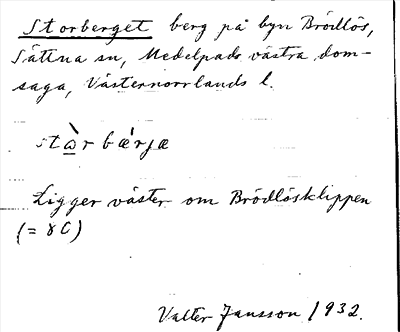 Storberget berg på byn Brödlös,
Sättna sn, Medelpads västra dom-
saga, Västernorrlands l.
stὼr bǽrjæ
Ligger väster om Brödlösklippen
(= 8 C)
Valter Jansson 1932.